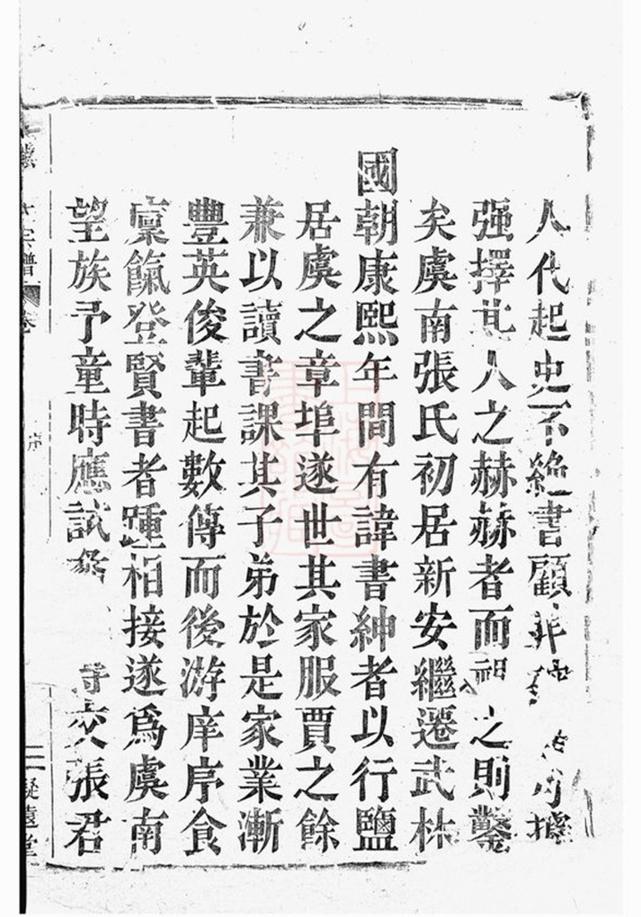 人代起史不絶書顧非
强擇其人之赫赫者而祖之則鑿
矣虞南張氏初居新安繼遷武林
國朝康熙年間有諱書紳者以行鹽
居虞之章埠遂世其家服賈之餘
兼以讀書課其子弟於是家業漸
豐英俊輩起數傳而後游庠序食
廩餼登賢書者踵相接遂爲虞南
望族予童時應試 交張君
宗譜 卷
序
二
凝遠堂